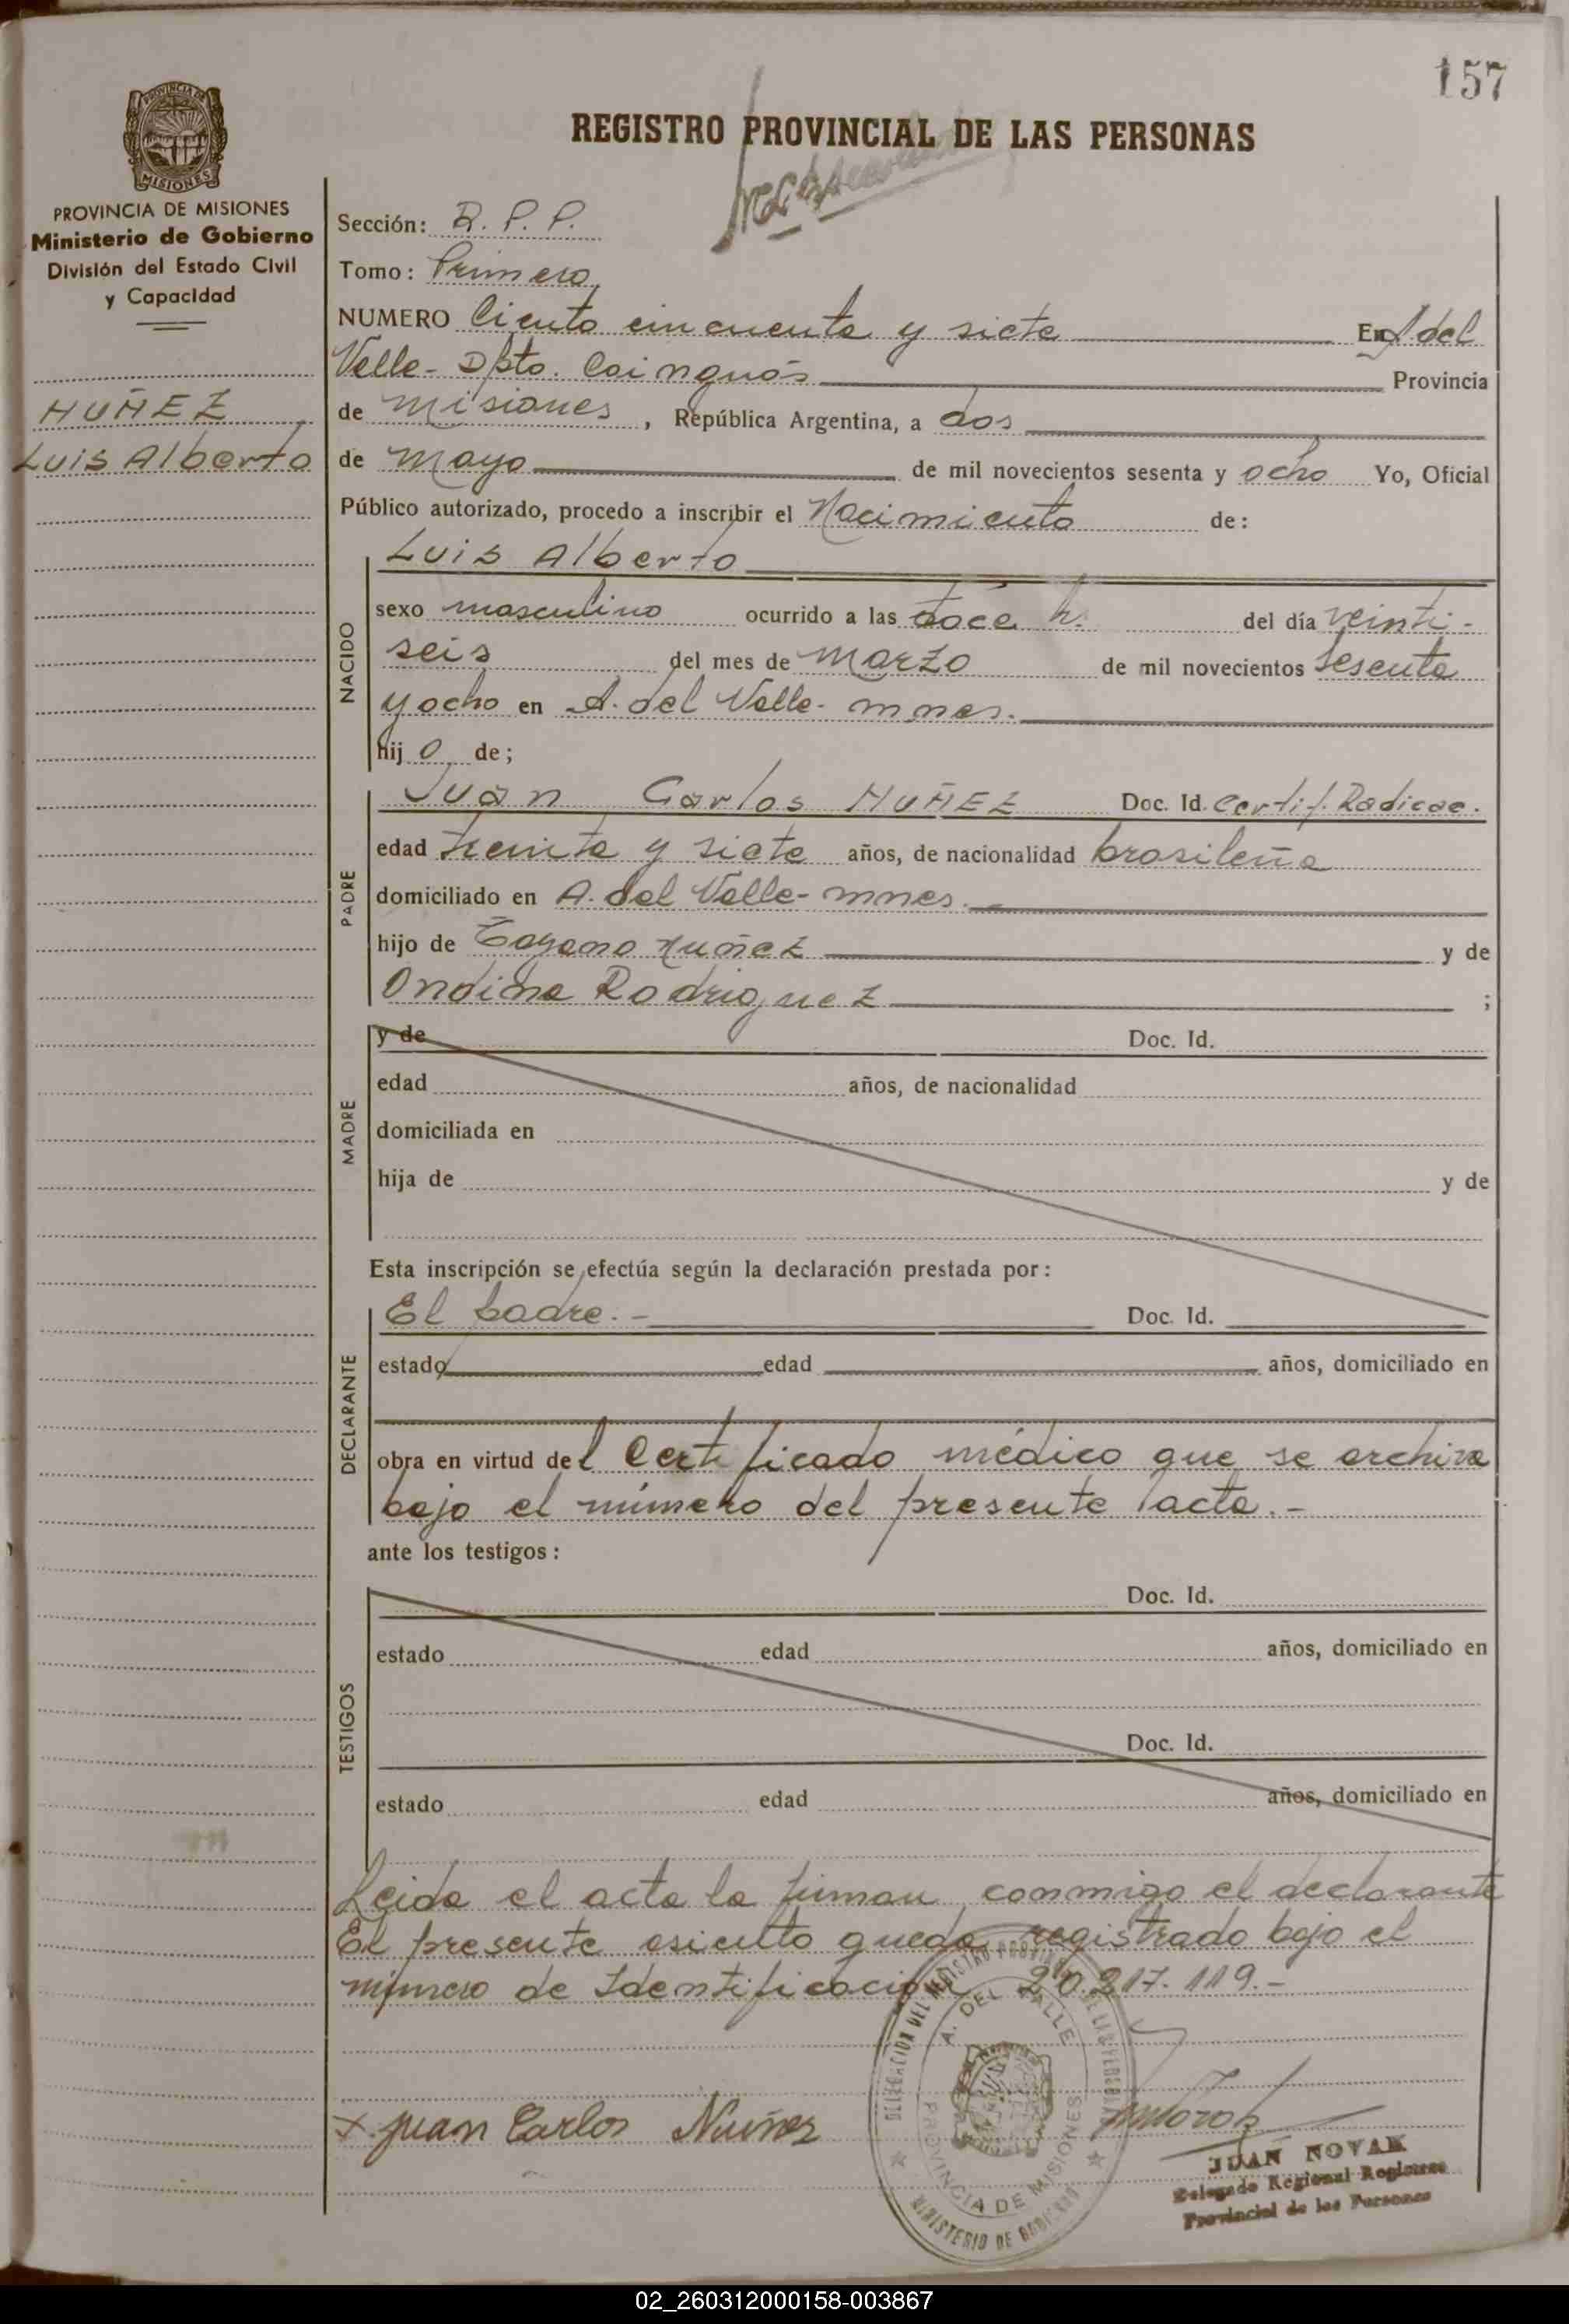 157
REGISTRO PROVINCIAL DE LAS PERSONAS
PROVINCIA DE MISIONES
MISIONES
PROVINCIA DE MISIONES
Ministerio de Gobierno
División del Estado Civil
y Capacidad
NUÑEZ
Luis Alberto
Sección: R. P. P.
Tomo: Primero
NUMERO Ciento cincuenta y siete En A del
Valle- Dpto. Cainguás Provincia
de Misiones, República Argentina, a dos
de Mayo de mil novecientos sesenta y ocho Yo, Oficial
Público autorizado, procedo a inscribir el Nacimiento de:
NACIDO
Luis Alberto
sexo masculino ocurrido a las doce h. del día veinti-
seis del mes de Marzo de mil novecientos sesenta
y ocho en A. del Valle- mnes.
hijo de;
PADRE
Juan Carlos NUÑEZ Doc. Id. Certif. Radicac.
edad treinta y siete años, de nacionalidad brasileña
domiciliado en A. del Valle- mnes.-
hijo de Nuñez y de
Ondina Rodriguez ;
MADRE
y de Doc. Id.
edad años, de nacionalidad
domiciliada en
hija de y de
Esta inscripción se efectúa según la declaración prestada por:
DECLARANTE
El padre.- Doc. Id.
estado edad años, domiciliado en
obra en virtud del Certificado médico que se archiva
bajo el número del presente acta.-
ante los testigos:
TESTIGOS
Doc. Id.
estado edad años, domiciliado en
Doc. Id.
estado edad años, domiciliado en
Leida el acta la firman conmigo el declarante
El presente asiento queda registrado bajo el
número de Identificación 20.217.119.-
DELEGACION DEL REGISTRO PROVINCIAL DE LAS PERSONAS
A. DEL VALLE
PROVINCIA DE MISIONES
MINISTERIO DE GOBIERNO
x Juan Carlos Nuñez
JUAN NOVAK
Delegado Regional Registro
Provincial de las Personas
02_260312000158-003867